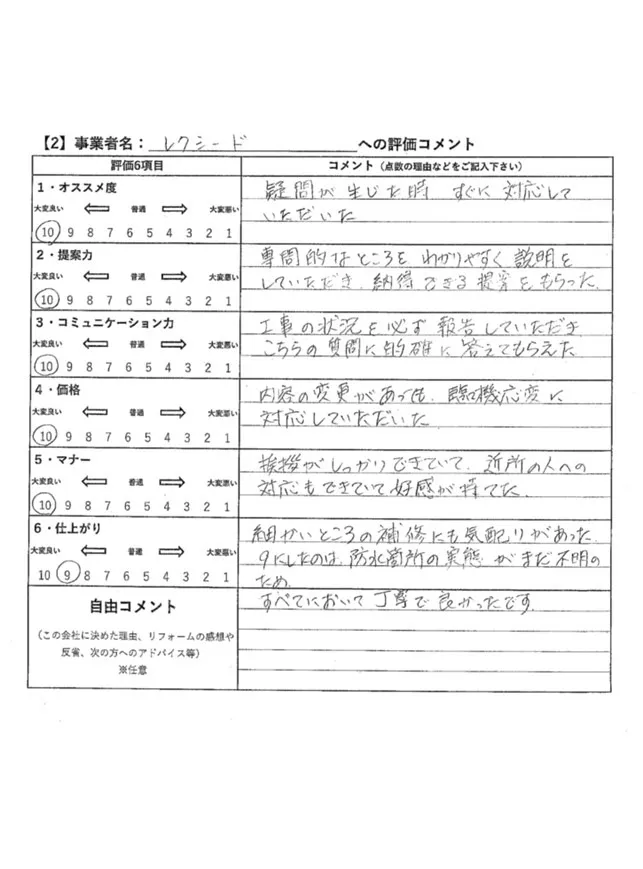 【2】事業者名：レクシード への評価コメント
評価6項目 コメント（点数の理由などをご記入下さい）
1・オススメ度
大変良い 普通 大変悪い
10 9 8 7 6 5 4 3 2 1
疑問が生じた時 すぐに対応して
いただいた
2・提案力
大変良い 普通 大変悪い
10 9 8 7 6 5 4 3 2 1
専門的なところを わかりやすく説明を
していただき、納得できる提案をもらった。
3・コミュニケーション力
大変良い 普通 大変悪い
10 9 8 7 6 5 4 3 2 1
工事の状況を必ず報告していただき
こちらの質問に的確に答えてもらえた
4・価格
大変良い 普通 大変悪い
10 9 8 7 6 5 4 3 2 1
内容の変更があっても、臨機応変に
対応していただいた
5・マナー
大変良い 普通 大変悪い
10 9 8 7 6 5 4 3 2 1
挨拶がしっかりできていて、近所の人への
対応もできていて好感が持てた。
6・仕上がり
大変良い 普通 大変悪い
10 9 8 7 6 5 4 3 2 1
細かいところの補修にも気配りがあった。
9にしたのは、防水箇所の実態がまだ不明の
ため。
自由コメント
（この会社に決めた理由、リフォームの感想や
反省、次の方へのアドバイス等）
※任意
すべてにおいて丁寧で良かったです。